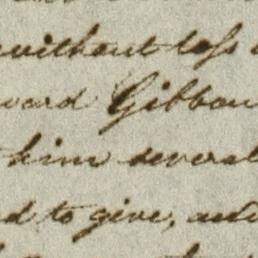 without loss
ward Gibbon
him several
d to give, and